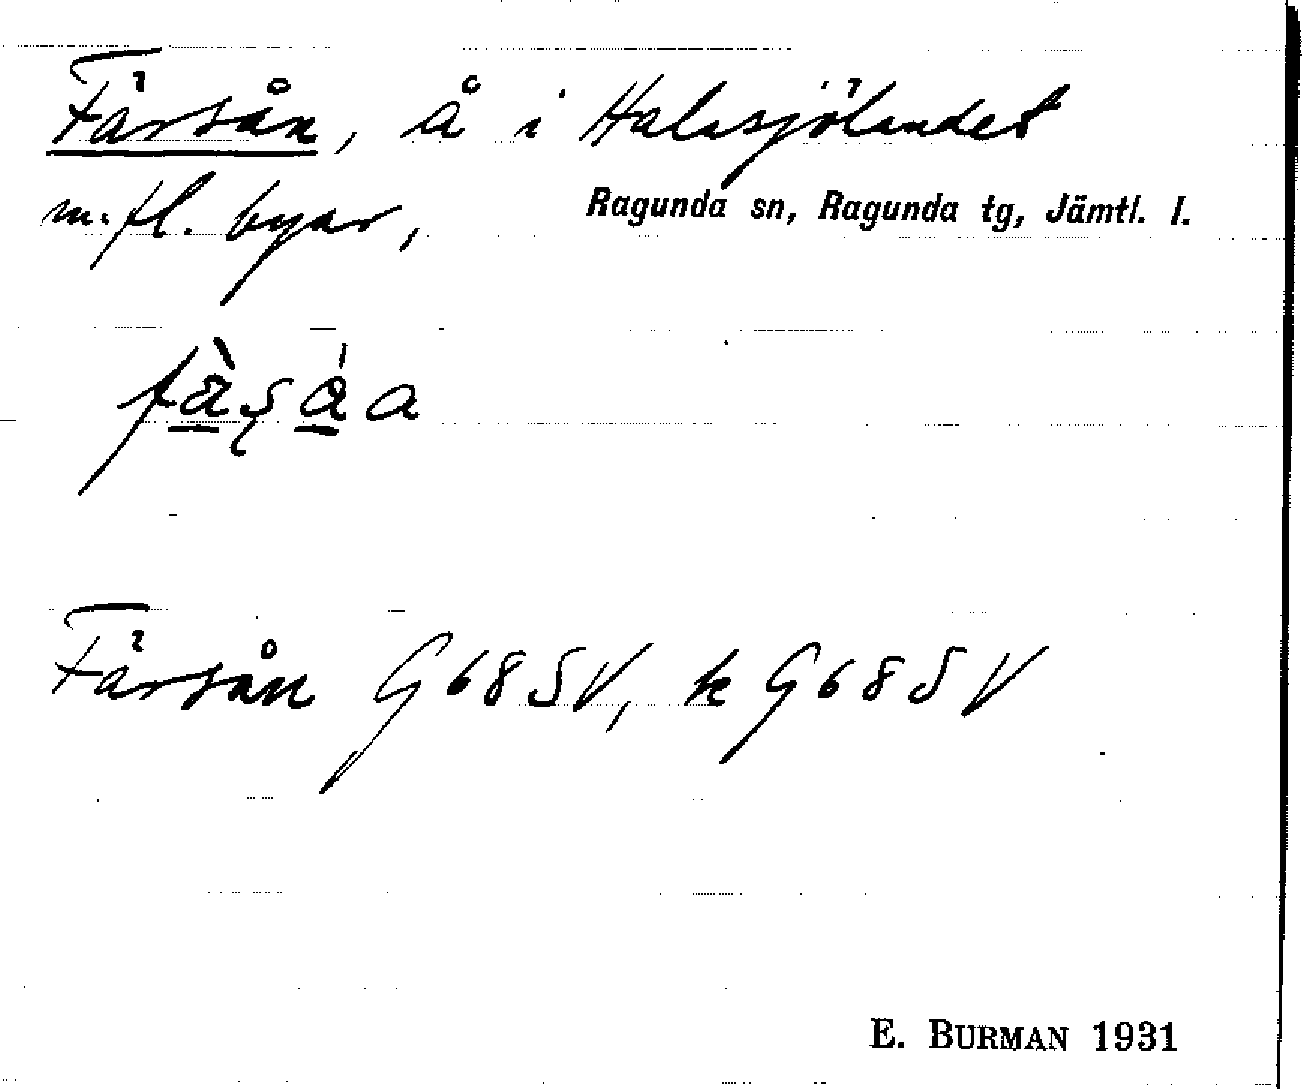 Färsån, å i Halasjölandet
m. fl. byar,
Ragunda sn, Ragunda tg, Jämtl. l.
Färsån G68SV, k G68SV
E. BURMAN 1931